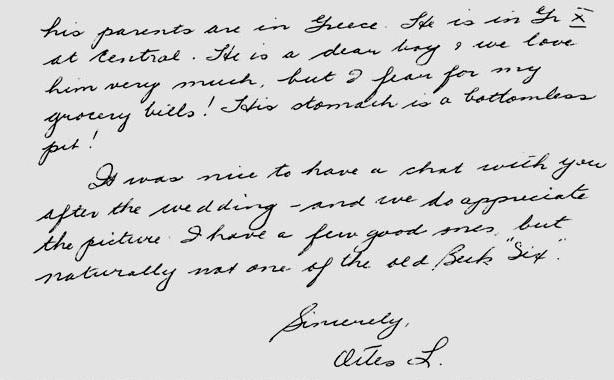 his parents are in Greece. He is in Gr X
at Central. He is a dear boy & we love
him very much, but I fear for my
grocery bills! His stomach is a bottomless
pit!
It was nice to have a chat with you
after the wedding - and we do appreciate
the picture. I have a few good ones, but
naturally not one of the old "Six".
Sincerely,
L.